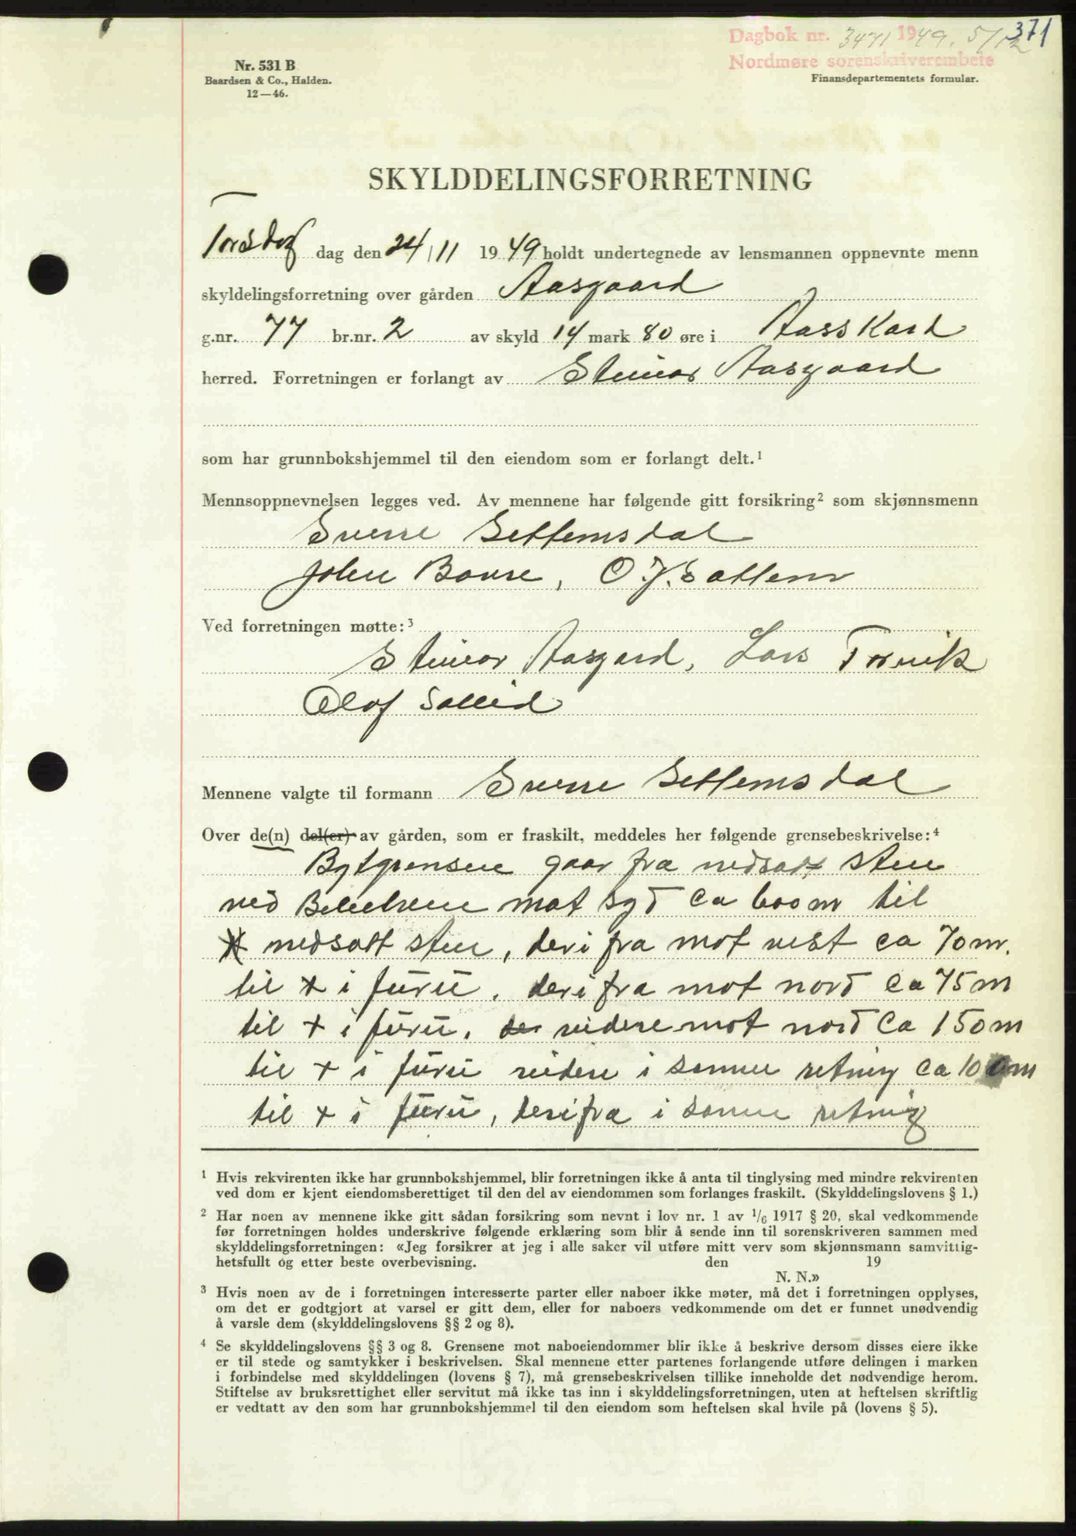 371
Dagbok nr. 3471 1949. 5/12
Nordmøre sorenskriverembete
Nr. 531 B
Baardsen & Co., Halden.
12—46.
Finansdepartementets formular.
SKYLDDELINGSFORRETNING
Torsdag dag den 24/11 1949 holdt undertegnede av lensmannen oppnevnte menn
skyldelingsforretning over gården Aasgaard
g.nr. 77 br.nr. 2 av skyld 14 mark 80 øre i Aasskard
herred. Forretningen er forlangt av Steinar Aasgaard
som har grunnbokshjemmel til den eiendom som er forlangt delt.¹
Mennsoppnevnelsen legges ved. Av mennene har følgende gitt forsikring² som skjønnsmenn
Sverre Settemsdal
John Bævre, O. J. Sættem
Ved forretningen møtte:³
Steinar Aasgard, Lars Torvik
Olaf Sollid
Mennene valgte til formann Sverre Settemsdal
Over de(n) del(er) av gården, som er fraskilt, meddeles her følgende grensebeskrivelse:⁴
Bytgrensen gaar fra nedsatt sten
ved mot syd ca 600 m til
nedsatt sten, derifra mot vest ca 70 m.
til x i furu, derifra mot nord ca 75 m
til x i furu, der videre mot nord ca 150 m
til x i furu videre i samme retning ca 100 m
til x i furu, derifra i samme retning
¹ Hvis rekvirenten ikke har grunnbokshjemmel, blir forretningen ikke å anta til tinglysing med mindre rekvirenten
ved dom er kjent eiendomsberettiget til den del av eiendommen som forlanges fraskilt. (Skylddelingslovens § 1.)
² Har noen av mennene ikke gitt sådan forsikring som nevnt i lov nr. 1 av 1/6 1917 § 20, skal vedkommende
før forretningen holdes underskrive følgende erklæring som blir å sende inn til sorenskriveren sammen med
skylddelingsforretningen: «Jeg forsikrer at jeg i alle saker vil utføre mitt verv som skjønnsmann samvittig-
hetsfullt og etter beste overbevisning. den 19
N. N.»
³ Hvis noen av de i forretningen interesserte parter eller naboer ikke møter, må det i forretningen opplyses,
om det er godtgjort at varsel er gitt dem, eller for naboers vedkommende om det er funnet unødvendig
å varsle dem (skylddelingslovens §§ 2 og 8).
⁴ Se skylddelingslovens §§ 3 og 8. Grensene mot naboeiendommer blir ikke å beskrive dersom disses eiere ikke
er til stede og samtykker i beskrivelsen. Skal mennene etter partenes forlangende utføre delingen i marken
i forbindelse med skylddelingen (lovens § 7), må grensebeskrivelsen tillike inneholde det nødvendige herom.
Stiftelse av bruksrettighet eller servitut må ikke tas inn i skylddelingsforretningen, uten at heftelsen skriftlig
er vedtatt av den som har grunnbokshjemmel til den eiendom som heftelsen skal hvile på (lovens § 5).